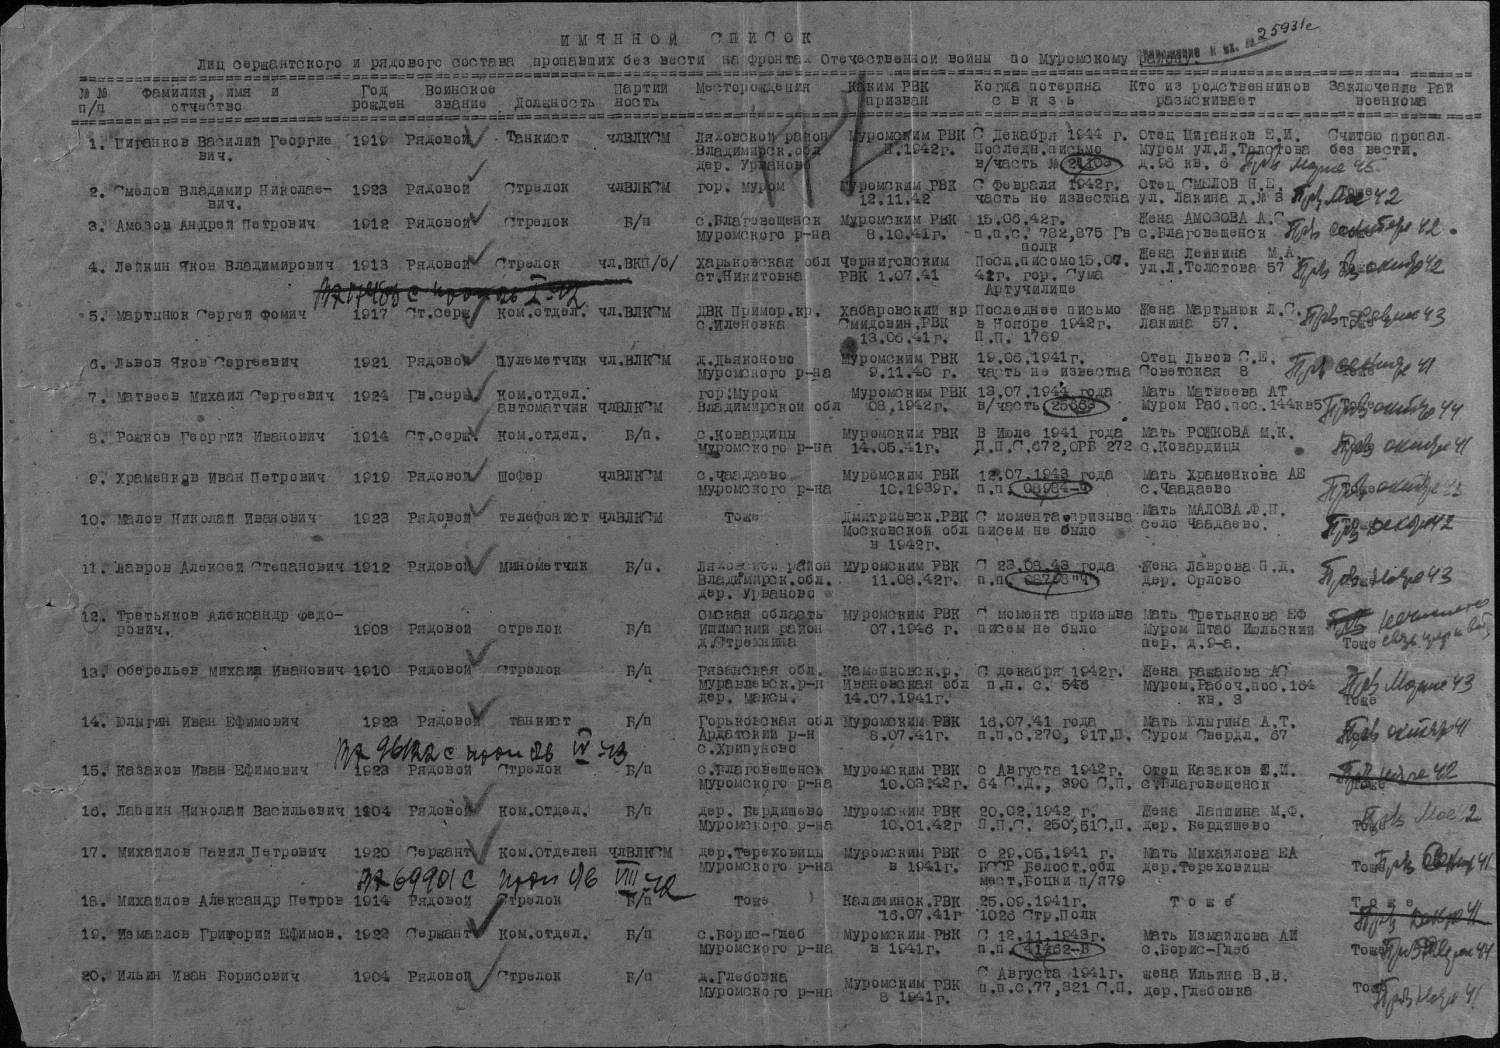 25931с
ИМЯННОЙ СПИСОК
Лиц сержантского и рядового состава пропавших без вести на фронтах Отечественной войны по Муромскому району.
№№ Фамилия, имя и Год Воинское Партий Месторождения Каким РВК Когда потеряна Кто из родственников Заключение Рай
п/п отчество рожден звание Должность ность призван связь разыскивает военкома
1. Цыганков Василий Георгие 1919 Рядовой Танкист члВЛКСМ Ляховской район Муромским РВК С Декабря 1944 г. Отец Цыганков Е.И. Считаю пропал
вич. Владимирск.обл 1942г. Последн.письмо Муром ул.Л.Толстова без вести.
дер. Урваново в/часть № 21103 д.96 кв. 6 Прв марте 45.
2. Смелов Владимир Николае- 1923 Рядовой Стрелок члВЛКСМ гор. Муром Муромским РВК С Февраля 1942г. Отец СМЕЛОВ Н.Е. Тоже
вич. 12.11.42 часть не известна ул. Лакина д.№ 3 42
3. Амозов Андрей Петрович 1912 Рядовой Стрелок Б/п с.Благовещенск Муромским РВК 15.06.42г. Жена АМОЗОВА А.С.
Муромского р-на 8.10.41г. п.п.с. 782,875 Гв с.Благовещенск 42.
полк
4. Лейкин Яков Владимирович 1913 Рядовой Стрелок чл.ВКП/б/ Харьковская обл Черниговским Посл.писомо15.07. Жена Лейкина М.А.
ст.Никитовка РВК 1.07.41 42г. гор. Сума ул.Л.Толстова 57 Прв октябр 42
Артучилище
5. Мартынюк Сергей Фомич 1917 Ст.серж Ком.отдел. чл.ВЛКСМ ДВК Примор.кр. Хабаровский кр Последнее письмо Жена Мартынюк Л.С.
с.Иленовка Смидович.РВК в Ноябре 1942г. Лакина 57. 43
13.06.41г. П.П. 1769
6. Львов Яков Сергеевич 1921 Рядовой Пулеметчик чл.ВЛКСМ д.Дьяконово Муромским РВК 19.06.1941г. Отец Львов С.Е.
Муромского р-на 9.11.40 г. часть не известна Советская 8 41
7. Матвеев Михаил Сергеевич 1924 Гв.серж. Ком.отдел. гор.Муром Муромским РВК 13.07.1944 года Мать Матвеева АТ
автоматчик члВЛКСМ Владимирской обл 08,1942г. в/часть 25663 Муром Раб.пос.144кв5 октябр 44
8. Рожков Георгий Иванович 1914 Ст.серж. Ком.отдел. Б/п. с.Ковардицы Муромским РВК В Июле 1941 года Мать РОЖКОВА М.К.
Муромского р-на 14.05.41г. Д.П.С.672,ОРБ 272 с.Ковардицы Прв октябр 41
9. Храменков Иван Петрович 1919 Рядовой Шофер члВЛКСМ с.Чаадаево Муромским РВК 12.07.1943 года Мать Храменкова АЕ
Муромского р-на 10.1939г. п.п. 08984-Ч с.Чаадаево
10. Малов Николай Иванович 1923 Рядовой телефонист члВЛКСМ Тоже Дмитриевск.РВК С момента призыва Мать МАЛОВА.Ф.П.
Московской обл писем не было село Чаадаево. 42
в 1942г.
11. Лавров Алексей Степанович 1912 Рядовой Минометчик Б/п. Ляховской район Муромским РВК С 23.08.43 года Жена Лаврова П.Д.
Владимирск.обл. 11.08.42г. п.п. 08708"Ч дер. Орлово 43
дер. Урваново
12. Третьяков Александр Федо- Омская область Муромским РВК С момента призыва Мать Третьякова ЕФ
рович. 1903 Рядовой стрелок Б/п Ишимский район 07.1946 г. писем не было Муром Штаб Июльский
д.Стрехнина пер. д.9-а. Тоже
13. Оберельев Михаил Иванович 1910 Рядовой Стрелок Б/п Рязанская обл. Камешковск.р. С декабря 1942г. Жена Бажанова АС
Муравлевск.р-н Ивановская обл п.п. с. 546 Муром.Рабоч.пос.164 Прв марте 43
дер. Максы. 14.07.1941г. кв. 3 Тоже
14. Юлыгин Иван Ефимович 1923 Рядовой танкист Б/п Горьковская обл Муромским РВК 16.07.41 года Мать Юлыгина А.Т.
Ардатский р-н 8.07.41г. п.п.с.270, 91Т.П. Суром Свердл. 67 октябр 41
с.Хрипуново
15. Казаков Иван Ефимович 1923 Рядовой Стрелок Б/п с.Благовещенск Муромским РВК с Августа 1942г. Отец Казаков Е.И.
Муромского р-на 10.03.42г. 64 С.Д., 390 С.П. с.Благовещенск Тоже
16. Лапшин Николай Васильевич 1904 Рядовой Ком.Отдел. Б/п дер. Бердищево Муромским РВК 20.02.1942 г. Жена Лапшина М.Ф.
Муромского р-на 10.01.42г П.П.С. 250,51С.П. дер. Бердищево Тоже
17. Михайлов Павил Петрович 1920 Сержант Ком.Отделен члВЛКСМ дер.Тереховицы Муромским РВК с 29.05.1941 г. Мать Михайлова ЕА
в 1941г. БССР Белост.обл дер.Тереховицы Тоже 41
мест.Боцки п/я79
18. Михайлов Александр Петров 1914 Рядовой Стрелок Б/п Тоже Калининск.РВК 25.09.1941г. Тоже Тоже
16.07.41г 1026 Стр.Полк
19. Измайлов Григорий Ефимов. 1922 Сержант Ком.отдел. Б/п с.Борис-Глеб Муромским РВК С 12.11.1943г. Мать Измайлова АИ
Муромского р-на в 1941г. п.п. 41462-В с.Борис-Глеб Тоже 44
20. Ильин Иван Борисович 1904 Рядовой Стрелок Б/п д.Глебовка Муромским РВК С Августа 1941г. жена Ильина В.В.
Муромского р-на 8 1941г. п.п.с.77,321 С.П. дер.Глебовка Тоже 41